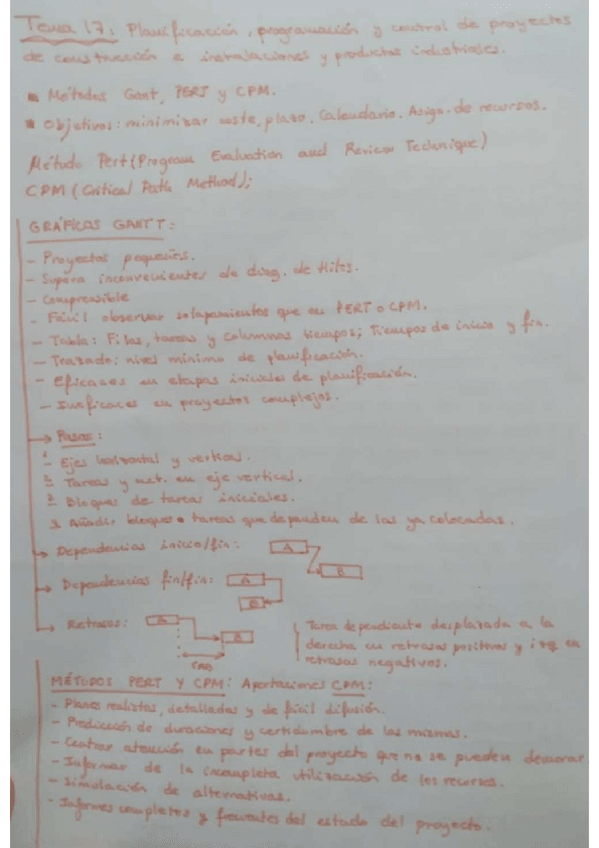 Tema 17: Planificación, programación y control de proyectos
de construcción e instalaciones y productos industriales.
Métodos Gant, PERT y CPM.
Objetivos: minimizar coste, plazo. Calendario. Asign. de recursos.
Método Pert (Program Evaluation and Review Technique)
CPM (Critical Path Method);
GRÁFICAS GANTT:
- Proyectos pequeños.
- Supera inconvenientes de diag. de Hitos.
- Comprensible
- Fácil observar solapamientos que en PERT o CPM.
- Tabla: Filas, tareas y columnas tiempos; Tiempos de inicio y fin.
- Trazado: nivel mínimo de planificación.
- Eficaces en etapas iniciales de planificación.
- Ineficaces en proyectos complejos.
→ Pasos:
- Ejes horizontal y vertical.
- Tareas y act. en eje vertical.
- Bloques de tareas iniciales.
Añadir bloques o tareas que dependen de las ya colocadas.
→ Dependencias inicio/fin: A B
→ Dependencias fin/fin: A B
→ Retrasos: A B
Tarea dependiente desplazada a la
derecha en retrasos positivos y izq en
retrasos negativos.
MÉTODOS PERT Y CPM: Aportaciones CPM:
- Planes realistas, detallados y de fácil difusión.
- Predicción de duraciones y certidumbre de las mismas.
- Centrar atención en partes del proyecto que no se pueden demorar
- Informar de la incompleta utilización de los recursos.
- Simulación de alternativas.
- Informes completos y frecuentes del estado del proyecto.